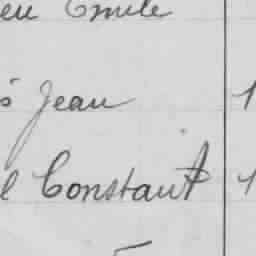 Emile
Jean 1
Constant 1